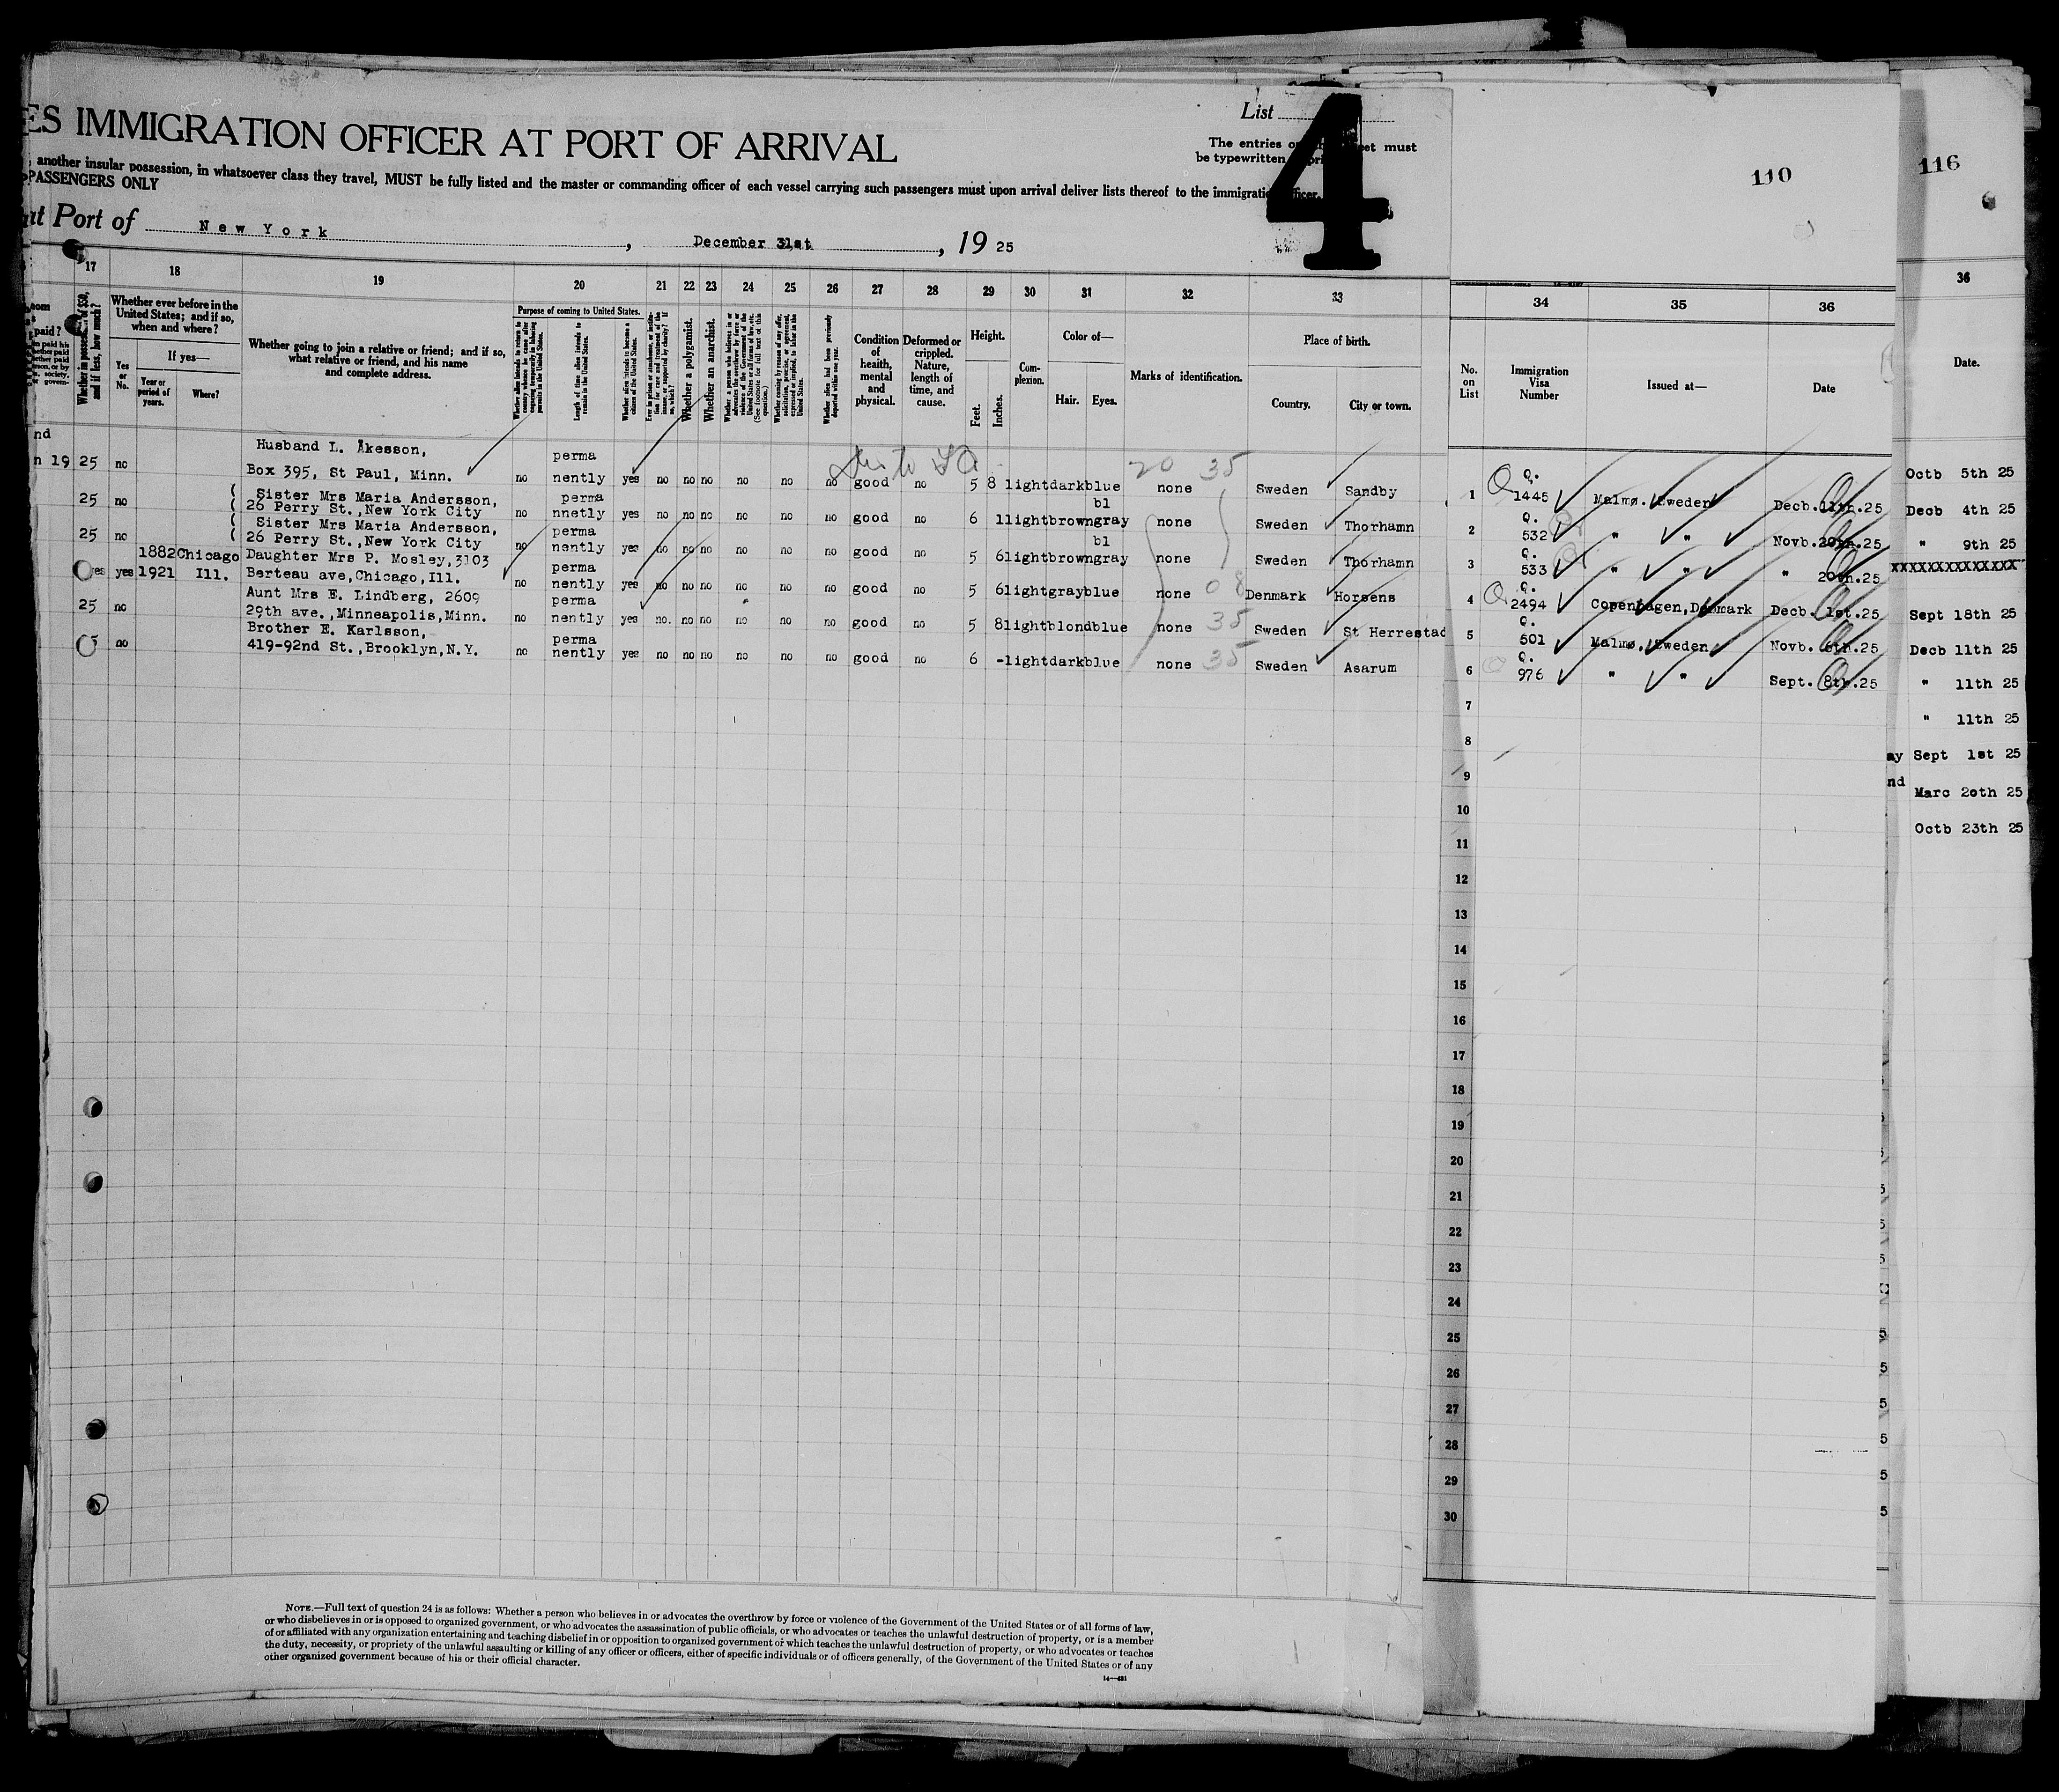 ES IMMIGRATION OFFICER AT PORT OF ARRIVAL
List
4
The entries on must
be typewritten
110
116
, another insular possession, in whatsoever class they travel, MUST be fully listed and the master or commanding officer of each vessel carrying such passengers must upon arrival deliver lists thereof to the immigration officer.
PASSENGERS ONLY
at Port of New York, December 31st, 19 25
17 18 19 20 21 22 23 24 25 26 27 28 29 30 31 32 33 34 35 36 36
Whether ever before in the United States; and if so, when and where?
If yes—
Yes or No.
Year or period of years.
Where?
Whether going to join a relative or friend; and if so, what relative or friend, and his name and complete address.
Purpose of coming to United States.
Length of time alien intends to remain in the United States.
Whether alien intends to become a citizen of the United States.
Whether a polygamist.
Whether an anarchist.
Condition of health, mental and physical.
Deformed or crippled. Nature, length of time, and cause.
Height.
Feet. Inches.
Complexion.
Color of—
Hair. Eyes.
Marks of identification.
Place of birth.
Country. City or town.
No. on List
Immigration Visa Number
Issued at—
Date
Date.
nd Husband L. Åkesson, perma
n 19 25 no Box 395, St Paul, Minn. no nently yes no no no no no no good no 5 8 light dark blue none 20 35 Sweden Sandby 1 Q. 1445 Malmø. Sweden Decb. 11th. 25
25 no ( Sister Mrs Maria Andersson, perma bl
( 26 Perry St., New York City no nnetly yes no no no no no no good no 6 1 light brown gray none Sweden Thorhamn 2 Q. 532 " " Novb. 20th. 25
25 no ( Sister Mrs Maria Andersson, perma bl
26 Perry St., New York City no nently yes no no no no no no good no 5 6 light brown gray none Sweden Thorhamn 3 Q. 533 " " " 20th. 25
1882 Chicago Daughter Mrs P. Mosley, 3103 perma
yes yes 1921 Ill. Berteau ave, Chicago, Ill. no nently yes no no no no no no good no 5 6 light gray blue none 08 Denmark Horsens 4 Q. 2494 Copenhagen, Denmark Decb. 1st. 25
Aunt Mrs E. Lindberg, 2609 perma
25 no 29th ave., Minneapolis, Minn. no nently yes no. no no no no no good no 5 8 light blond blue none 35 Sweden St Herrestad 5 Q. 501 Malmø. Sweden Novb. 6th. 25
Brother E. Karlsson, perma
no 419-92nd St., Brooklyn, N.Y. no nently yes no no no no no no good no 6 - light dark blue none 35 Sweden Asarum 6 Q. 976 " " Sept. 8th. 25
7
8
9
10
11
12
13
14
15
16
17
18
19
20
21
22
23
24
25
26
27
28
29
30
Octb 5th 25
Decb 4th 25
" 9th 25
XXXXXXXXXXXXXX
Sept 18th 25
Decb 11th 25
" 11th 25
" 11th 25
ay Sept 1st 25
nd Marc 20th 25
Octb 23th 25
NOTE.—Full text of question 24 is as follows: Whether a person who believes in or advocates the overthrow by force or violence of the Government of the United States or of all forms of law,
or who disbelieves in or is opposed to organized government, or who advocates the assassination of public officials, or who advocates or teaches the unlawful destruction of property, or is a member
of or affiliated with any organization entertaining and teaching disbelief in or opposition to organized government or which teaches the unlawful destruction of property, or who advocates or teaches
the duty, necessity, or propriety of the unlawful assaulting or killing of any officer or officers, either of specific individuals or of officers generally, of the Government of the United States or of any
other organized government because of his or their official character.